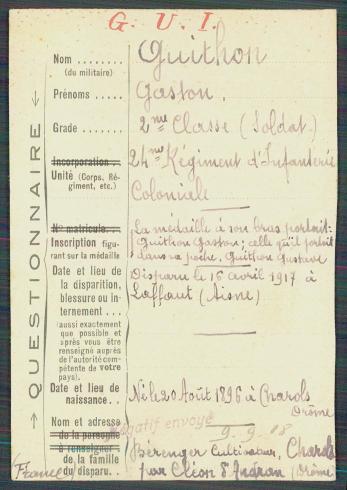 G. U. I.
QUESTIONNAIRE
Nom ........ Guithon
(du militaire)
Prénoms ..... Gaston.
Grade ..... 2me Classe (Soldat.)
Incorporation. 24me Régiment d'Infanterie
Unité (Corps, Ré-
giment, etc.) Coloniale
N° matricule. La médaille à son bras portait:
Inscription figu-
rant sur la médaille
Guithon Gaston; celle qu'il portait
dans sa poche. Guithon Gustave
Date et lieu de Disparu le 16 avril 1917 à
la disparition, Laffaut (Aisne)
blessure ou in-
ternement ...
(aussi exactement
que possible et
après vous être
renseigné auprès
de l'autorité com-
pétente de votre
pays).
Date et lieu de
naissance .. Né le 20 Août 1896 à Charols
Drôme
négatif envoyé
Nom et adresse 9-9-18
de la personne
à renseigner
de la famille
du disparu..
Bérenger Cultivateur, Charols
par Cléon d'Andran (Drôme)
(France)